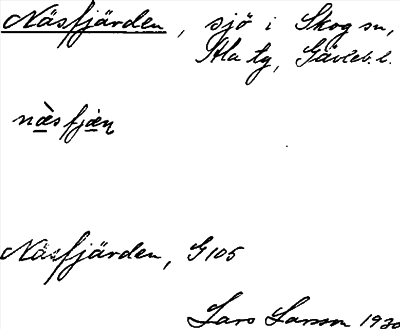 Näsfjärden, sjö i Skog sn,
Ala tg, Gävleb. l.
nàsfjæɳ
Näsfjärden, G105
Lars Larsson 1930